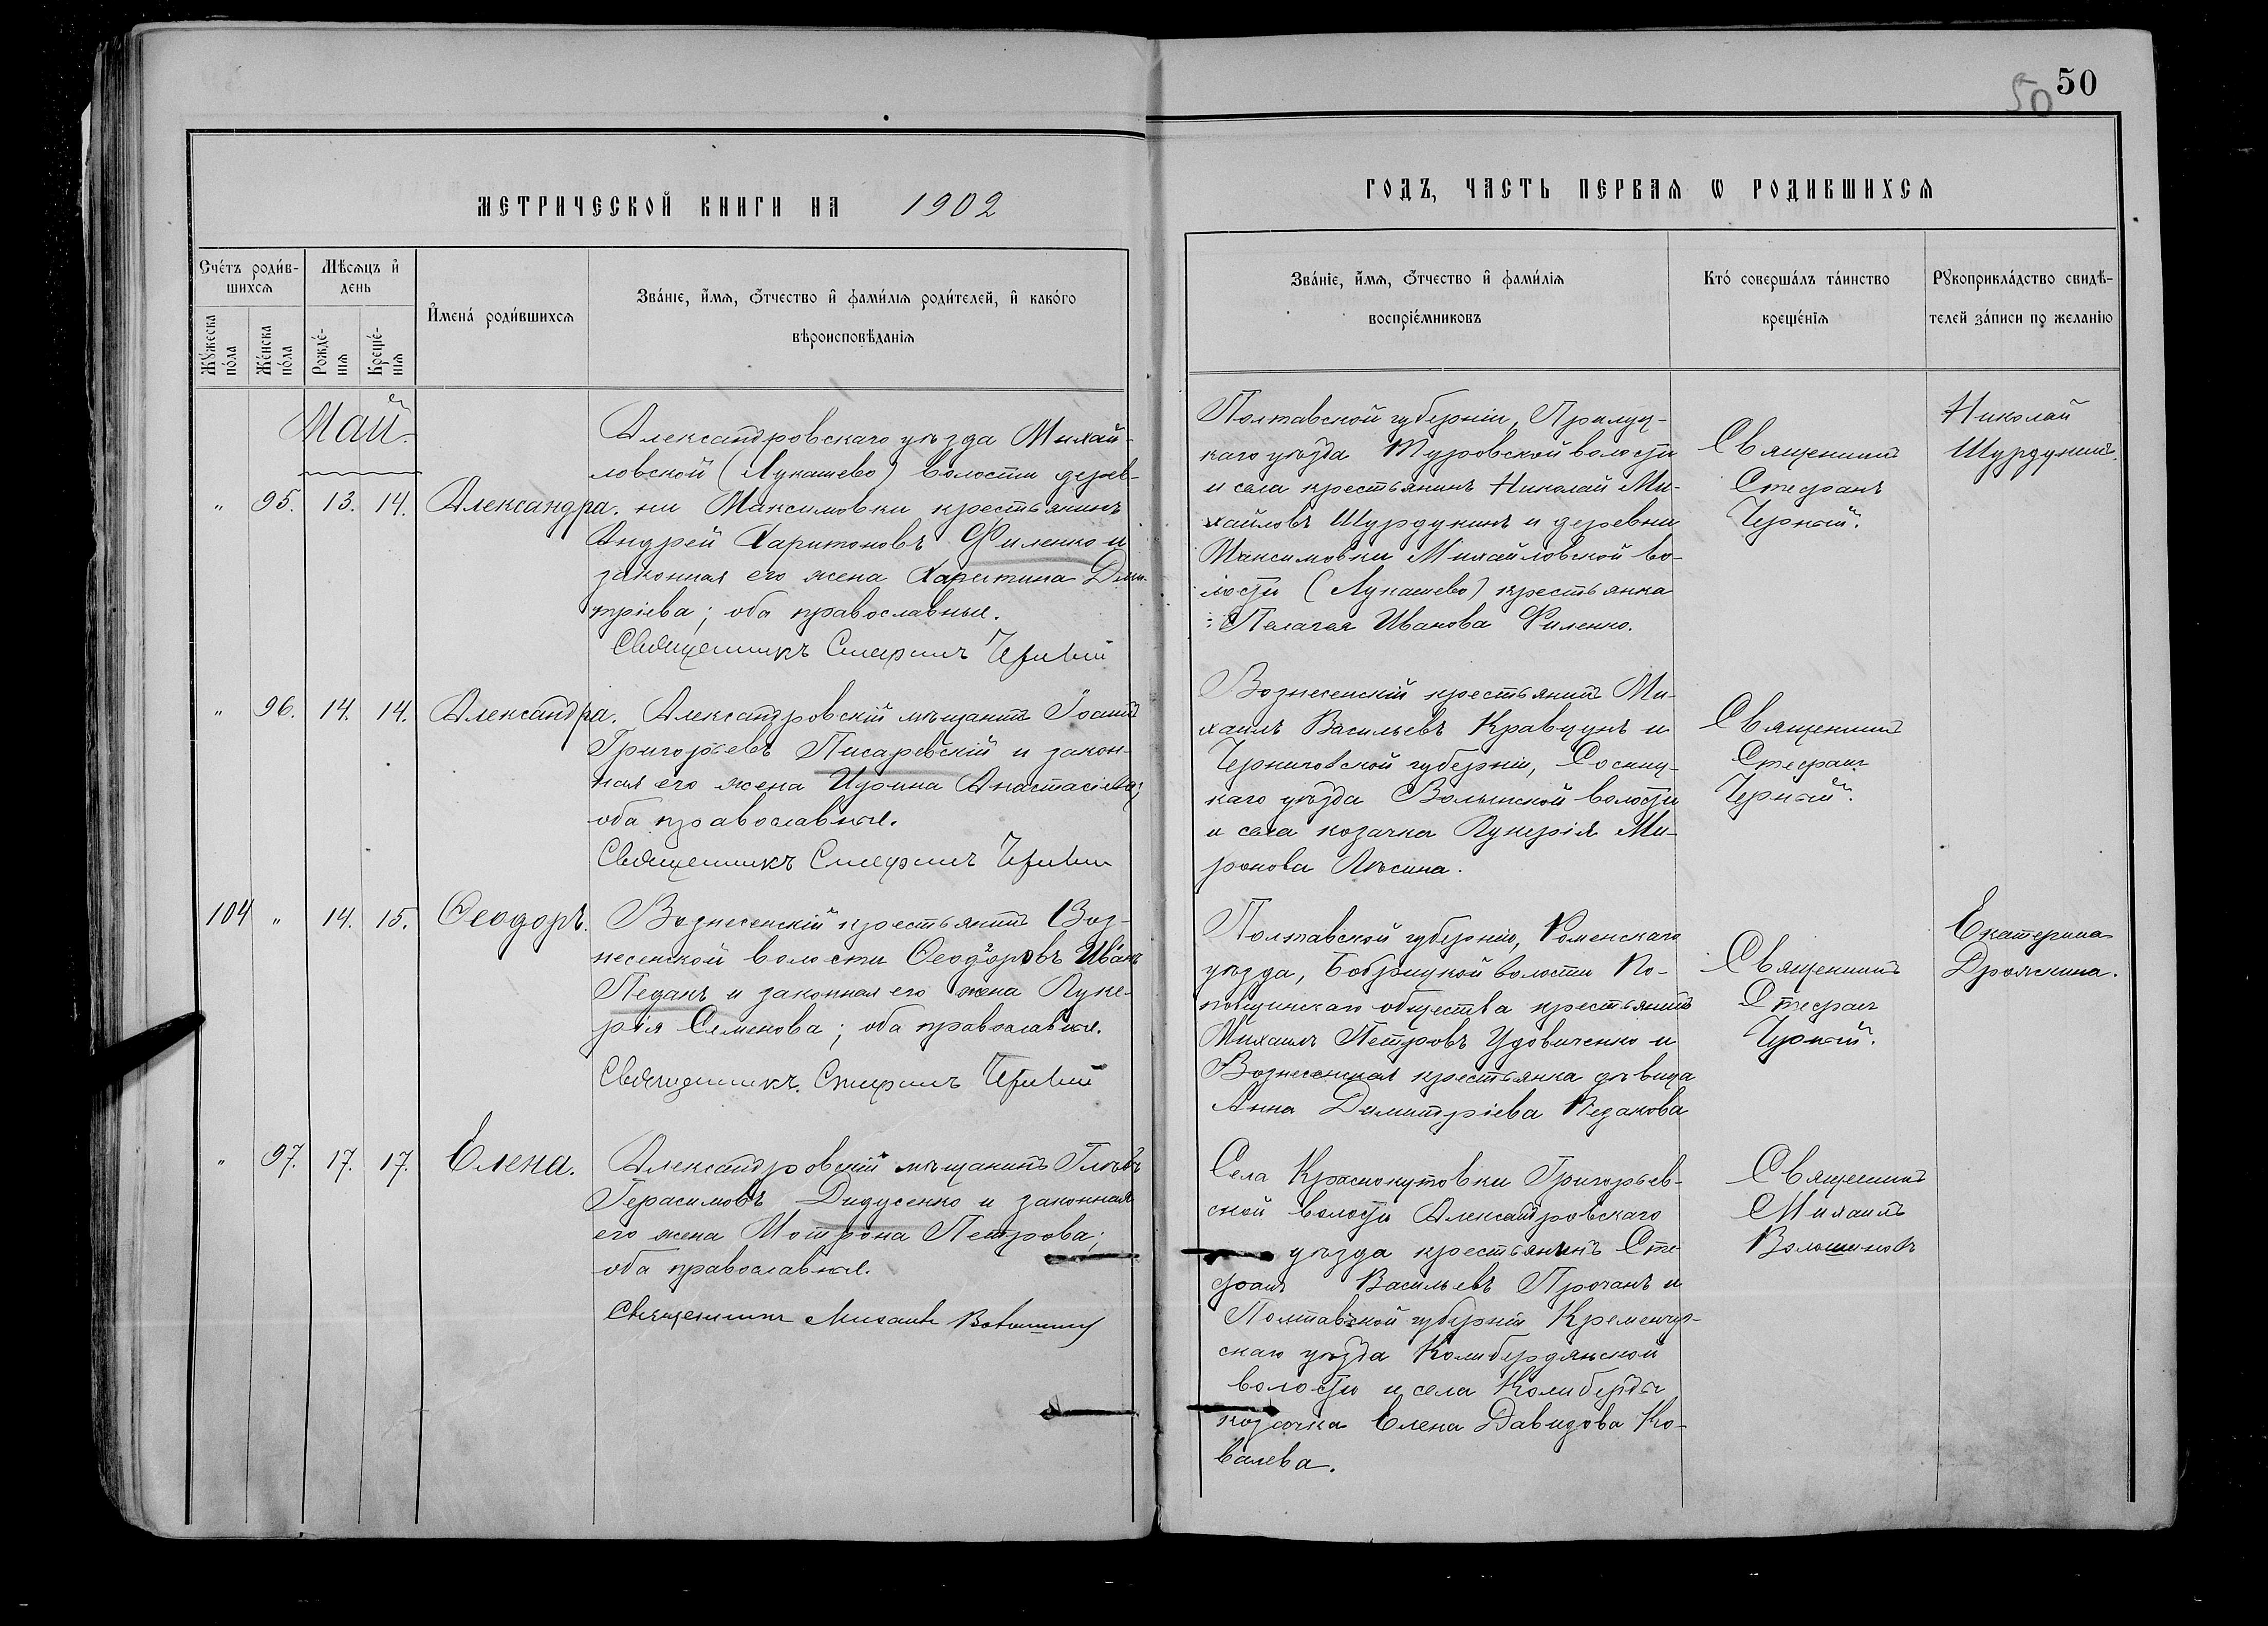 50
50
МЕТРИЧЕСКОЙ КНИГИ НА 1902
ГОДЪ, ЧАСТЬ ПЕРВАѦ Ѡ РОДИВШИХСѦ
Счétъ роди́в-
шихсѧ
Мꙋ́жеска по́ла
Же́нска по́ла
Мѣ́сѧцъ и҆ день
Рожде́-
нїѧ
Креще́-
нїѧ
И҆мена̀ роди́вшихсѧ
Зва́нїе, и҆́мѧ, ѻ҆́тчество и҆ фами́лїѧ роди́телей, и҆ како́го
вѣроисповѣ́данїѧ
Зва́нїе, и҆́мѧ, ѻ҆́тчество и҆ фами́лїѧ
воспрїе́мниковъ
Кто̀ соверша́лъ та́инство
креще́нїѧ
Рꙋкоприкла́дство свидѣ́-
телей за́писи по жела́нїю
Май.
" 95. 13. 14. Александра.
Александровскаго уѣзда Михай-
ловской (Лукашево) волости дерев-
ни Максимовки крестьянинъ
Андрей Харитоновъ Филенко и
законная его жена Харитина Дми-
тріева; оба православные.
Священникъ Стефанъ Черный
Полтавской губерніи, Прилуц-
каго уѣзда Туровской волости
и села крестьянинъ Николай Ми-
хайловъ Шурдукинъ и деревни
Максимовки Михайловской во-
лости (Лукашево) крестьянка
Пелагея Иванова Филенко.
Священникъ
Стефанъ
Черный.
Николай
" 96. 14. 14. Александра.
Александровскій мѣщанинъ Іоаннъ
Григорьевъ Писаревскій и закон-
ная его жена Ирина Анастасіева;
оба православные.
Священникъ Стефанъ Черный
Вознесенскій крестьянинъ Ми-
хаилъ Васильевъ Кравцунъ и
Черниговской губерніи, Сосниц-
каго уѣзда Волынской волости
и села козачка Лукерія Ми-
ронова
Священникъ
Стефанъ
Черный.
104 " 14. 15. Ѳеодоръ.
Вознесенскій крестьянинъ Воз-
несенской волости Ѳеодоровъ Иванъ
Педанъ и законная его жена Луке-
рія Семенова; оба православные.
Священникъ Стефанъ Черный
Полтавской губерніи, Роменскаго
уѣзда, Бобрицкой волости По-
повщинскаго общества крестьянинъ
Михаилъ Петровъ Удовиченко и
Вознесенская крестьянка дѣвица
Анна Димитріева Педанова
Священникъ
Стефанъ
Черный.
Екатерина
" 97. 17. 17. Елена.
Александровскій мѣщанинъ Глѣбъ
Герасимовъ Дидусенко и законная
его жена Мотрона Петрова;
оба православные.
Священникъ Михаилъ Волошиновъ
Села Краснокутовки Григорьев-
ской волости Александровскаго
уѣзда крестьянинъ Сте-
фанъ Васильевъ Прочанъ и
Полтавской губерніи Кременчуг-
скаго уѣзда Келибердянской
волости и села Келиберды
козачка Елена Давидова Ко-
валева.
Священникъ
Михаилъ
Волошиновъ